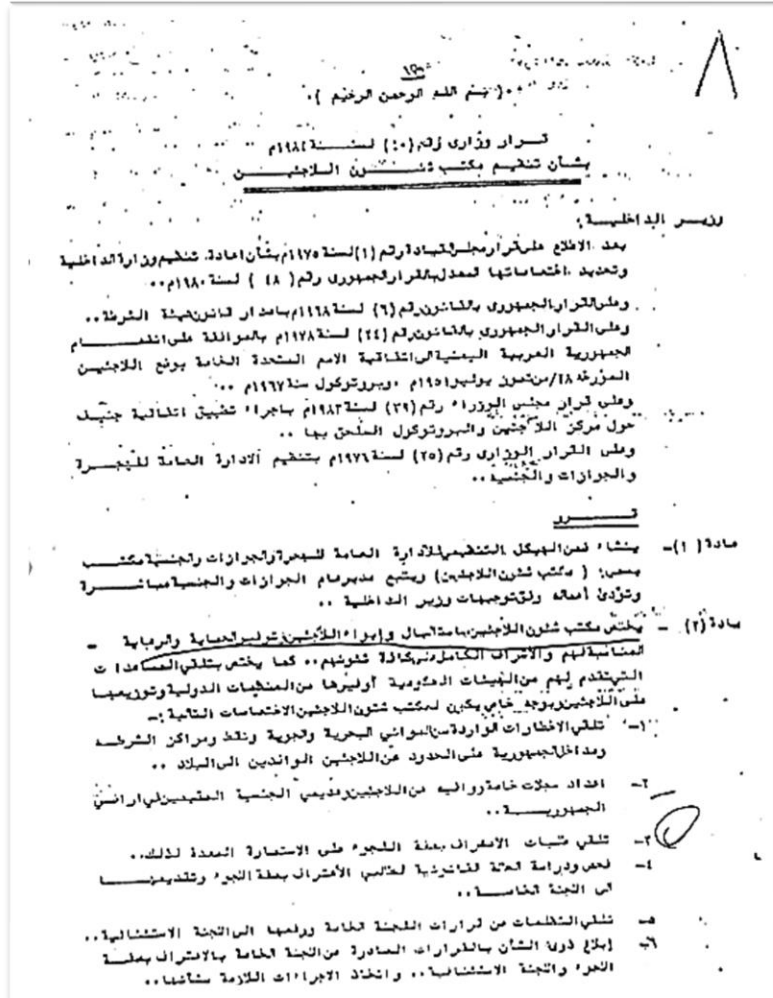 ( بسم الله الرحمن الرحيم )
قرار وزارى رقم (٤٠) لسنة ١٩٨٤م
بشأن تنظيم مكتب شئون اللاجئين
وزير الداخلية :
بعد الاطلاع على قرار مجلس القيادة رقم (١) لسنة ١٩٧٥م بشأن اعادة تنظيم وزارة الداخلية
وتحديد اختصاصاتها المعدل بالقرار الجمهورى رقم ( ٤٨ ) لسنة ١٩٨٠م ..
وعلى القرار الجمهورى بالقانون رقم (٦) لسنة ١٩٦٨م باصدار قانون هيئة الشرطة ..
وعلى القرار الجمهورى بالقانون رقم (٢٤) لسنة ١٩٧٨م بالموافقة على انضمام
الجمهورية العربية اليمنية الى اتفاقية الامم المتحدة الخاصة بوضع اللاجئين
المؤرخه ٢٨/من تموز يوليو ١٩٥١م وبروتوكول سنة ١٩٦٧م ..
وعلى قرار مجلس الوزراء رقم (٣٩) لسنة ١٩٨٣م باجراء تطبيق اتفاقية جنيف
حول مركز اللاجئين والبروتوكول الملحق بها ..
وعلى القرار الوزارى رقم (٢٥) لسنة ١٩٧٦م بتنظيم الادارة العامة للهجرة
والجوازات والجنسية ..
قـــرر
مادة (١)- ينشاء ضمن الهيكل التنظيمي للادارة العامة للهجرة والجوازات والجنسية مكتب
يسمى ( مكتب شئون اللاجئين) ويتبع مدير عام الجوازات والجنسية مباشرة
وتؤدى اعماله وفق توجيهات وزير الداخلية ..
مادة (٢) - يختص مكتب شئون اللاجئين باستقبال وإيواء اللاجئين وتوفير الحماية والرعاية
المناسبة لهم والاشراف الكامل على كافة شئونهم .. كما يختص بتلقي المساعدات
التي تقدم لهم من الهيئات الحكومية أو غيرها من المنظمات الدولية وتوزيعها
على اللاجئين وبوجه خاص يكون لمكتب شئون اللاجئين الاختصاصات التالية :-
١- تلقي الاخطارات الواردة من الموانى البحرية والجوية ونقط ومراكز الشرطه
ومداخل الجمهورية على الحدود عن اللاجئين الوافدين الى البلاد ..
٢- اعداد سجلات خاصة ووافيه عن اللاجئين وعديمي الجنسية المقيمين في اراضي
الجمهورية ..
٣- تلقي طلبات الاعتراف بصفة اللجوء على الاستمارة المعدة لذلك ..
٤- فحص ودراسة الحالة القانونية لطالبي الاعتراف بصفة اللجوء وتقديمها
الى اللجنة الخاصة ..
٥- تلقي التظلمات من قرارات اللجنة الخاصة ورفعها الى اللجنة الاستئنافية ..
٦- إبلاغ ذوى الشأن بالقرارات الصادرة من اللجنة الخاصة بالاعتراف بصفة
اللجوء واللجنة الاستئنافية .. واتخاذ الاجراءات اللازمة بشأنها ..